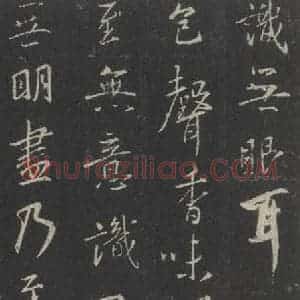 識無眼耳
色聲香味
至無意識
無明盡乃至
shufaziliao.COM